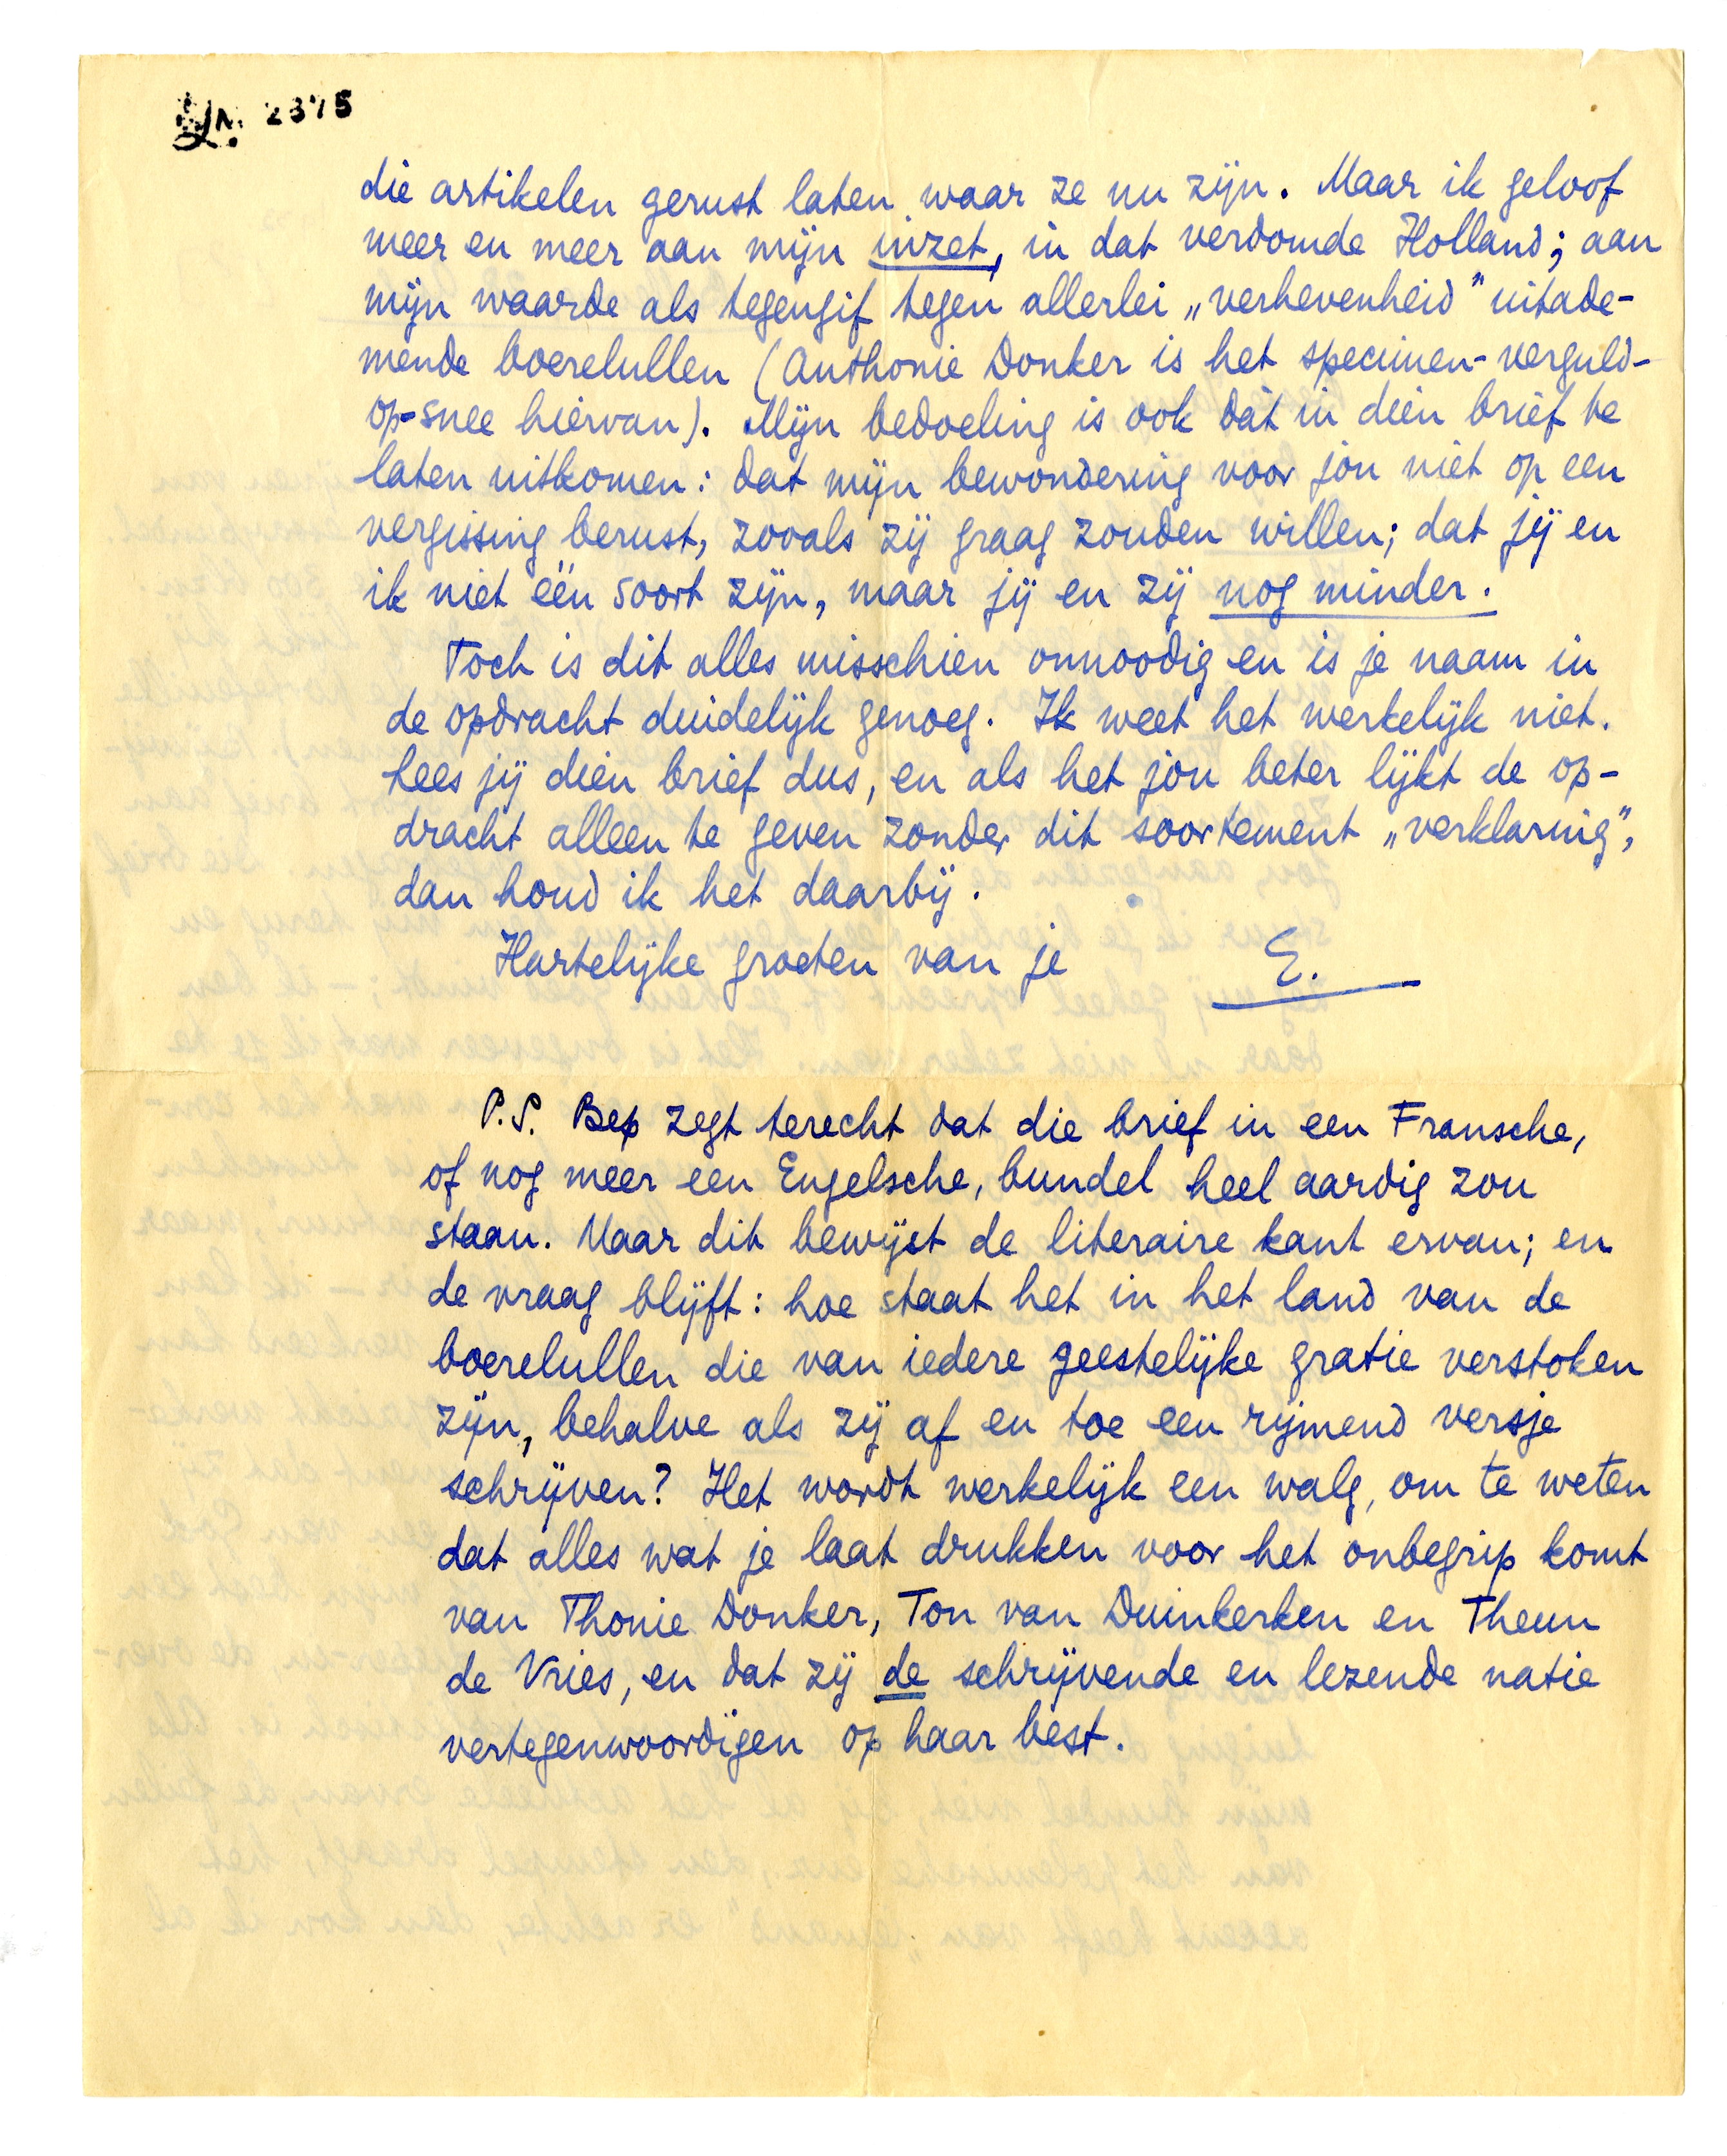 2375
die artikelen gerust laten waar ze nu zijn. Maar ik geloof
meer en meer aan mijn inzet, in dat verdomde Holland; aan
mijn waarde als tegengif tegen allerlei „verhevenheid" uitade-
mende boerelullen (Anthonie Donker is het specimen-verguld-
op-snee hiervan). Mijn bedoeling is ook dàt in dien brief te
laten uitkomen: dat mijn bewondering voor jou niet op een
vergissing berust, zooals zij graag zouden willen; dat jij en
ik niet één soort zijn, maar jij en zij nog minder.
Toch is dit alles misschien onnoodig en is je naam in
de opdracht duidelijk genoeg. Ik weet het werkelijk niet.
Lees jij dien brief dus, en als het jou beter lijkt de op-
dracht alleen te geven zonder dit soortement „verklaring",
dan houd ik het daarbij.
Hartelijke groeten van je E.
P.S. Bep zegt terecht dat die brief in een Fransche,
of nog meer een Engelsche, bundel heel aardig zou
staan. Maar dit bewijst de literaire kant ervan; en
de vraag blijft: hoe staat het in het land van de
boerelullen die van iedere geestelijke gratie verstoken
zijn, behalve als zij af en toe een rijmend versje
schrijven? Het wordt werkelijk een walg, om te weten
dat alles wat je laat drukken voor het onbegrip komt
van Thonie Donker, Ton van Duinkerken en Theun
de Vries, en dat zij de schrijvende en lezende natie
vertegenwoordigen op haar best.